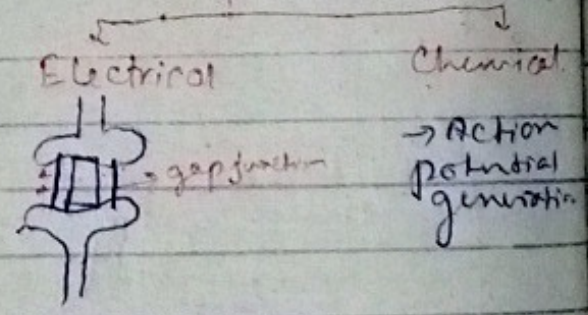 Electrical
Chemical
→ gap junction
→ Action
potential
generation